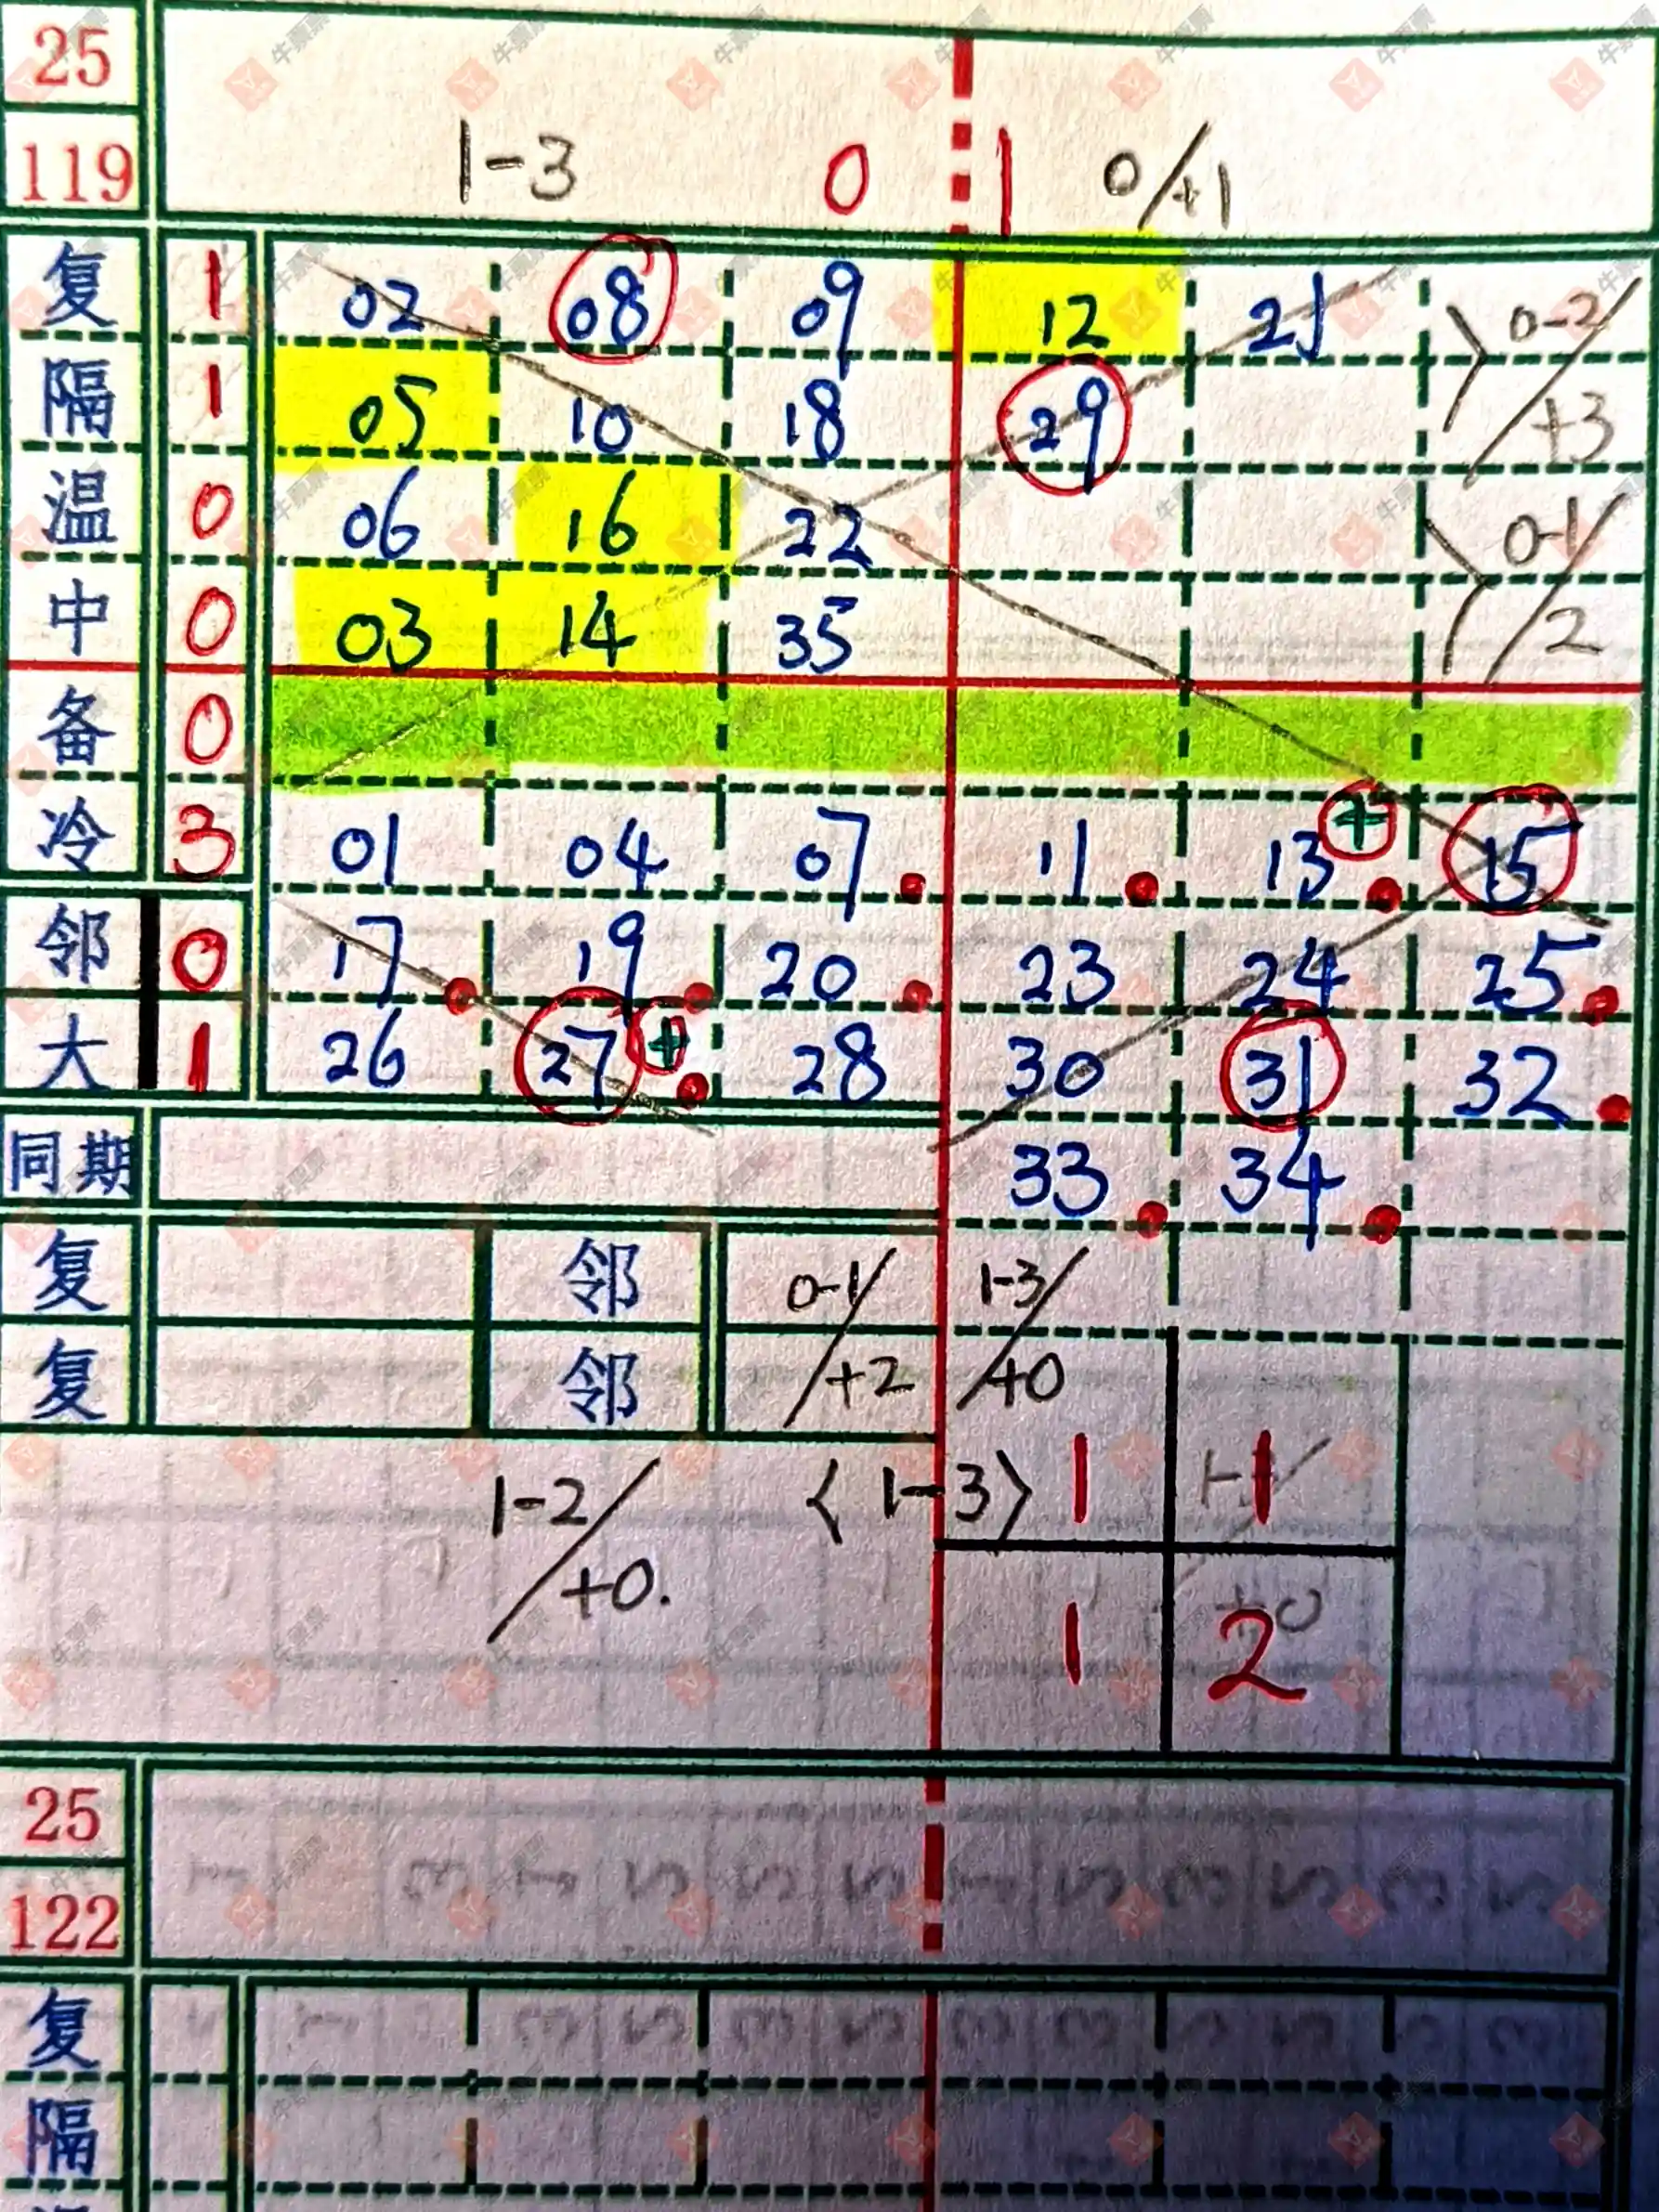 25
119 1-3 0 1 0/+1
复 1 02 08 09 12 21 0-2/
隔 1 05 10 18 29 +3
温 0 06 16 22 0-1/
中 0 03 14 35 2
备 0
冷 3 01 04 07 11 13 + 15
邻 0 17 19 20 23 24 25
大 1 26 27 + 28 30 31 32
同期 33 34
复 邻 0-1/ 1-3/
复 邻 +2 +0
1-2/ 〈1-3〉 1 1
+0. 1 2
25
122
复
隔
牛票票